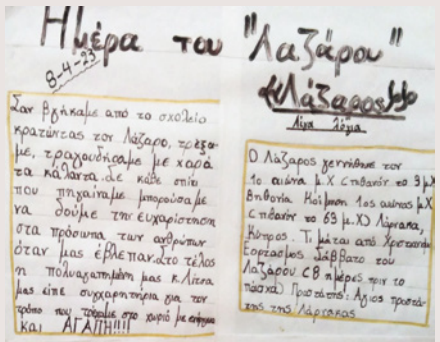 Ημέρα του "Λαζάρου"
8-4-23
Σαν βγήκαμε από το σχολείο
κρατώντας τον Λάζαρο, τρέξα-
με, τραγουδήσαμε με χαρά
τα κάλαντα. Σε κάθε σπίτι
που πηγαίναμε μπορούσαμε
να δούμε την ευχαρίστηση
στα πρόσωπα των ανθρώπων
όταν μας έβλεπαν. Στο τέλος
η πολυαγαπημένη μας κ. Λίτσα
μας είπε συγχαρητήρια για τον
τρόπο που τα με στο χωριό με
και ΑΓΑΠΗ!!!!
«Λάζαρος»
Λίγα λόγια
Ο Λάζαρος γεννήθηκε τον
1ο αιώνα μ.Χ (πιθανόν το 3 μ.Χ
Βηθανία Κοίμηση 1ος αιώνας μ.Χ
(πιθανόν το 63 μ.Χ) Λάρνακα,
Κύπρος. Τιμάται από Χριστιαν
Εορτασμός Σάββατο του
Λαζάρου (8 ημέρες πριν το
πάσχα) Προστάτης: Άγιος προστά-
της της Λάρνακας